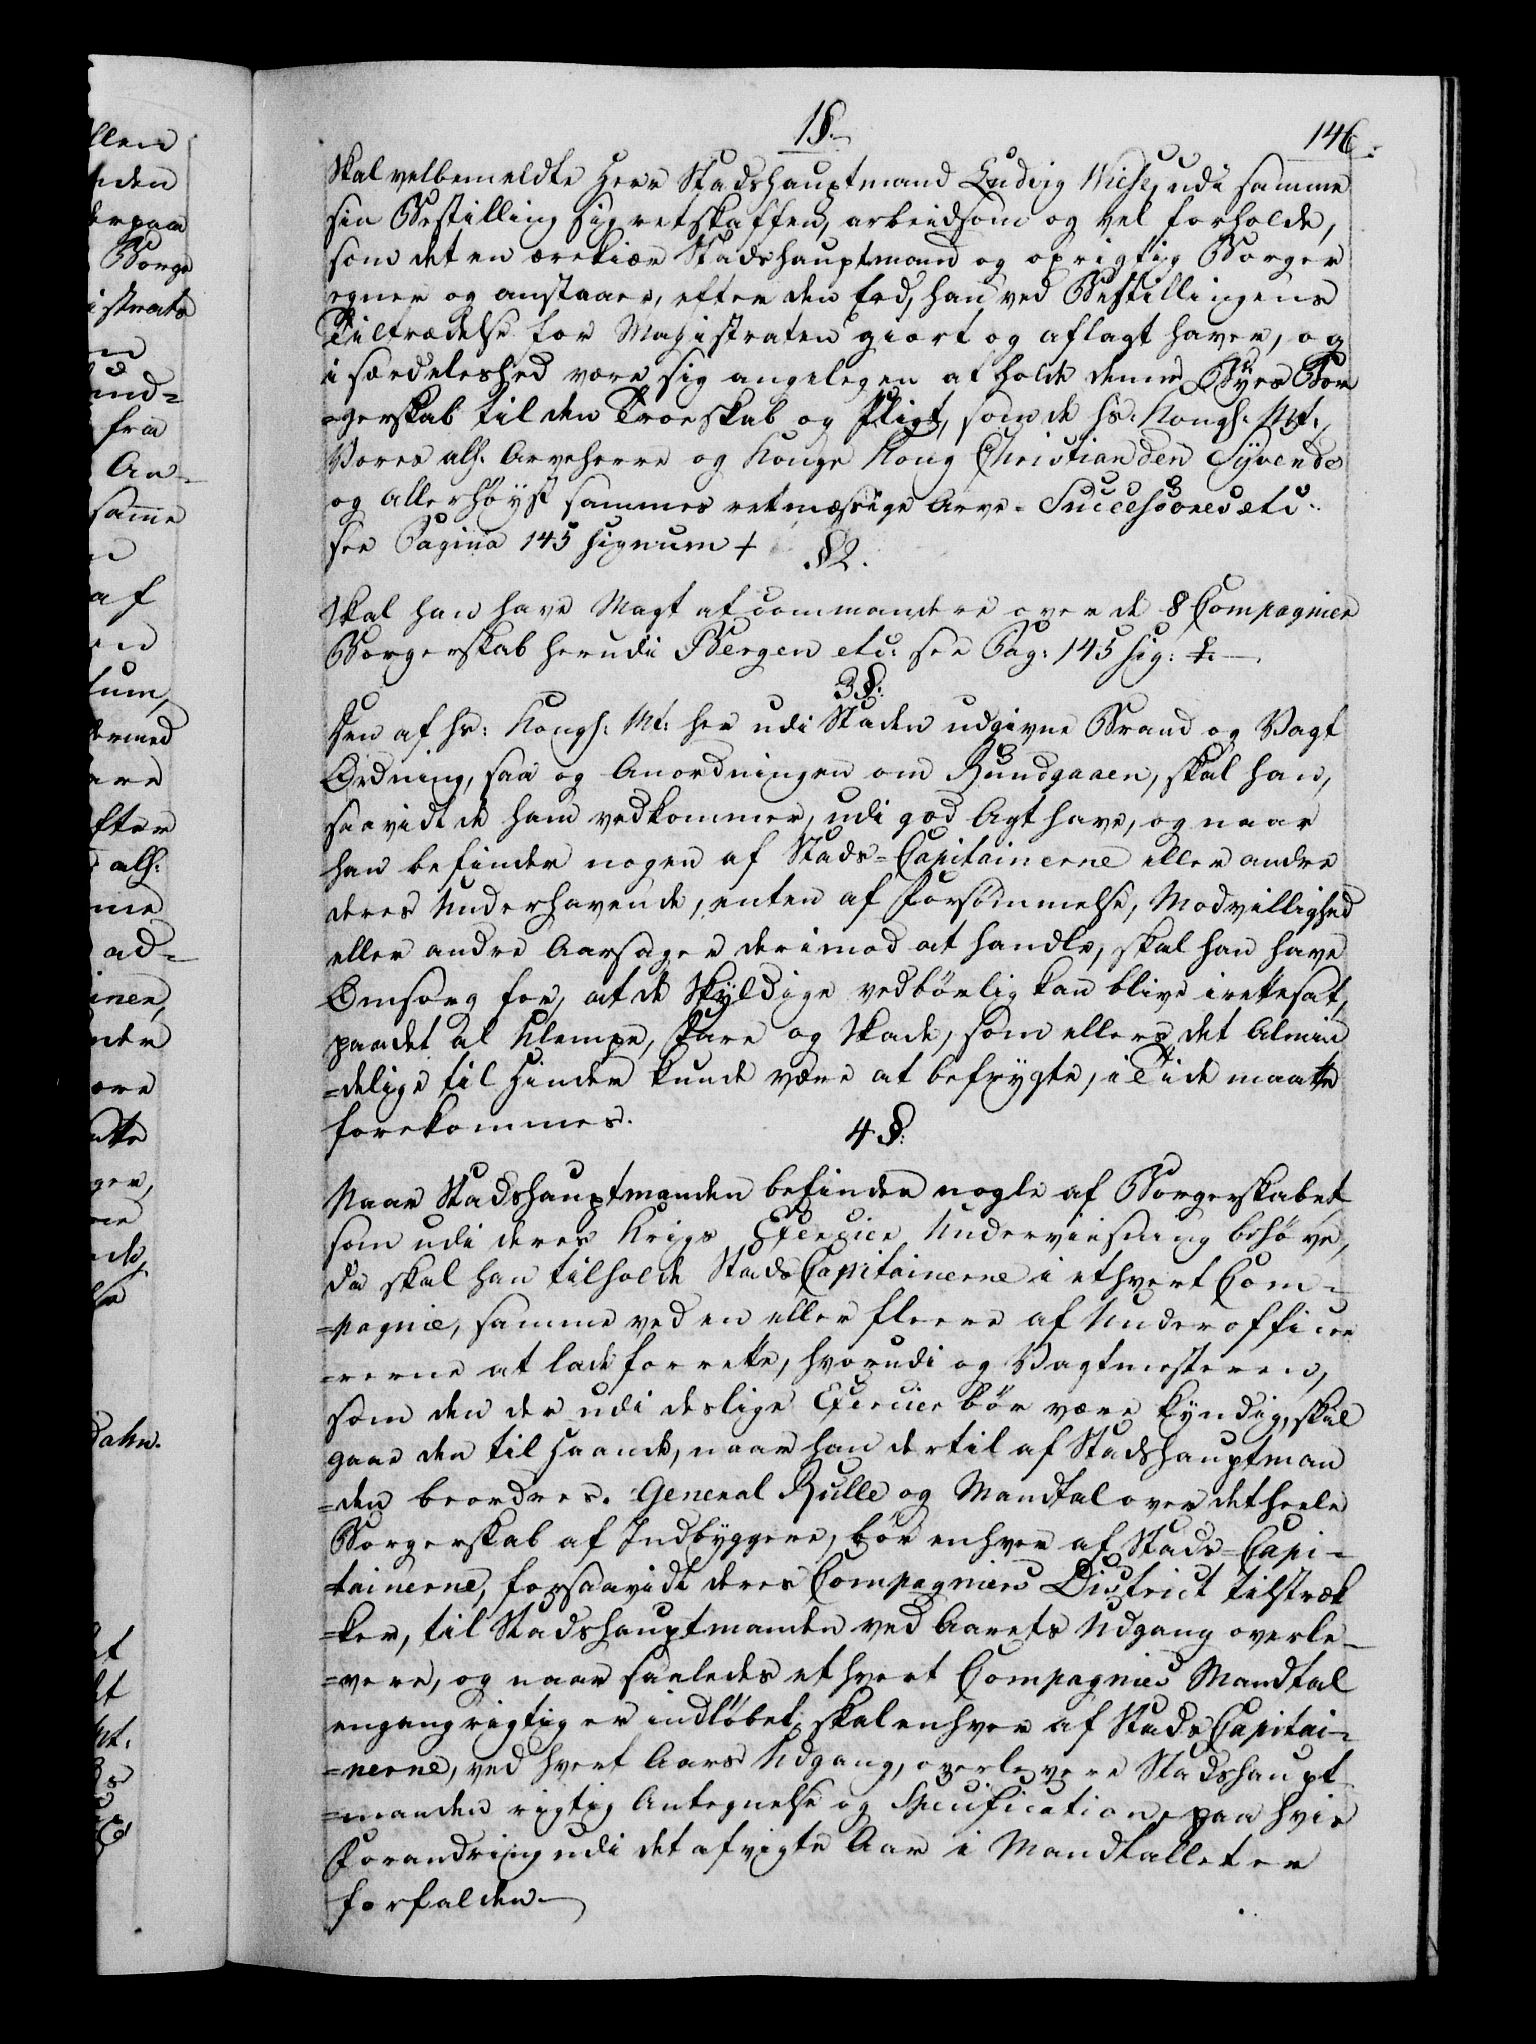 1§.
146.
Skal velbemeldte Herr Stadshauptmand Ludvig Wiese, udi samme
sin Bestilling sig retskaffen, arbeidsom og vel forholde,
som det en ærekiær Stadshauptmand og oprigtig Borger
egner og anstaaer, efter den Eed, han ved Bestillingens
Tiltrædelse for Magistraten giort og aflagt haver, og
i særdeleshed være sig angelegen at holde denne Byes Bor
-gerskab til den Troeskab og Pligt, som de Hs. Kongl. Mt.,
Vores all. Arveherre og Konge Kong Christian den Syvende
og Allerhöyst sammes retmæssige Arve-Successores etc.
see Pagina 145 signum +
§2.
Skal han have Magt at commandere over de 8 Compagnier
Borgerskab herudi Bergen etc: see Pag: 145 sig:
3§.
Den af Hs: Kongl: Mt: her udi Staden udgivne Brand og Vagt
Ordning, saa og Anordningen om Rundgaaen, skal han,
saavidt de ham vedkommer, udi god Agt have, og naar
han befinder nogen af Stads-Capitainerne eller andre
deres Underhavende, enten af Forsömmelse, Modvillighed
eller andre Aarsager derimod at handle, skal han have
Omsorg for, at de Skyldige vedbörlig kan blive irettesat,
paadet al Ulempe, Fare og Skade, som ellers det Almin
-delige til Hinder kunde være at befrygte, i Tide maatte
forekommes.
4§.
Naar Stadshauptmanden befinder nogle af Borgerskabet
som udi deres Krigs Exercice Underviisning behöve,
da skal han tilholde Stads Capitainerne i ethvert Com-
-pagnie, samme ved en eller fleere af Underofficee
-rerne at lade forrette, hvorudi og Vagtmesteren,
som den der udi deslige Exercice bör være kyndig, skal
gaae den til Haande, naar han dertil af Stadshauptman
-den beordres. General Rulle og Mandtal over det heele
Borgerskab af Indbyggere, bör enhver af Stads-Capi-
-tainerne, forsaavidt deres Compagniers District tilstræk
-ker, til Stadshauptmanden ved Aarets Udgang overle-
-vere, og naar saaledes ethvert Compagnies Mandtal
engang rigtig er indlöbet, skal enhver af Stads Capitai-
-nerne, ved hvert Aars Udgang, overlevere Stadshaupt
-manden rigtig Antegnelse og Specification, paa hvis
Forandring udi det afvigte Aar i Mandtallet er
forfalden.